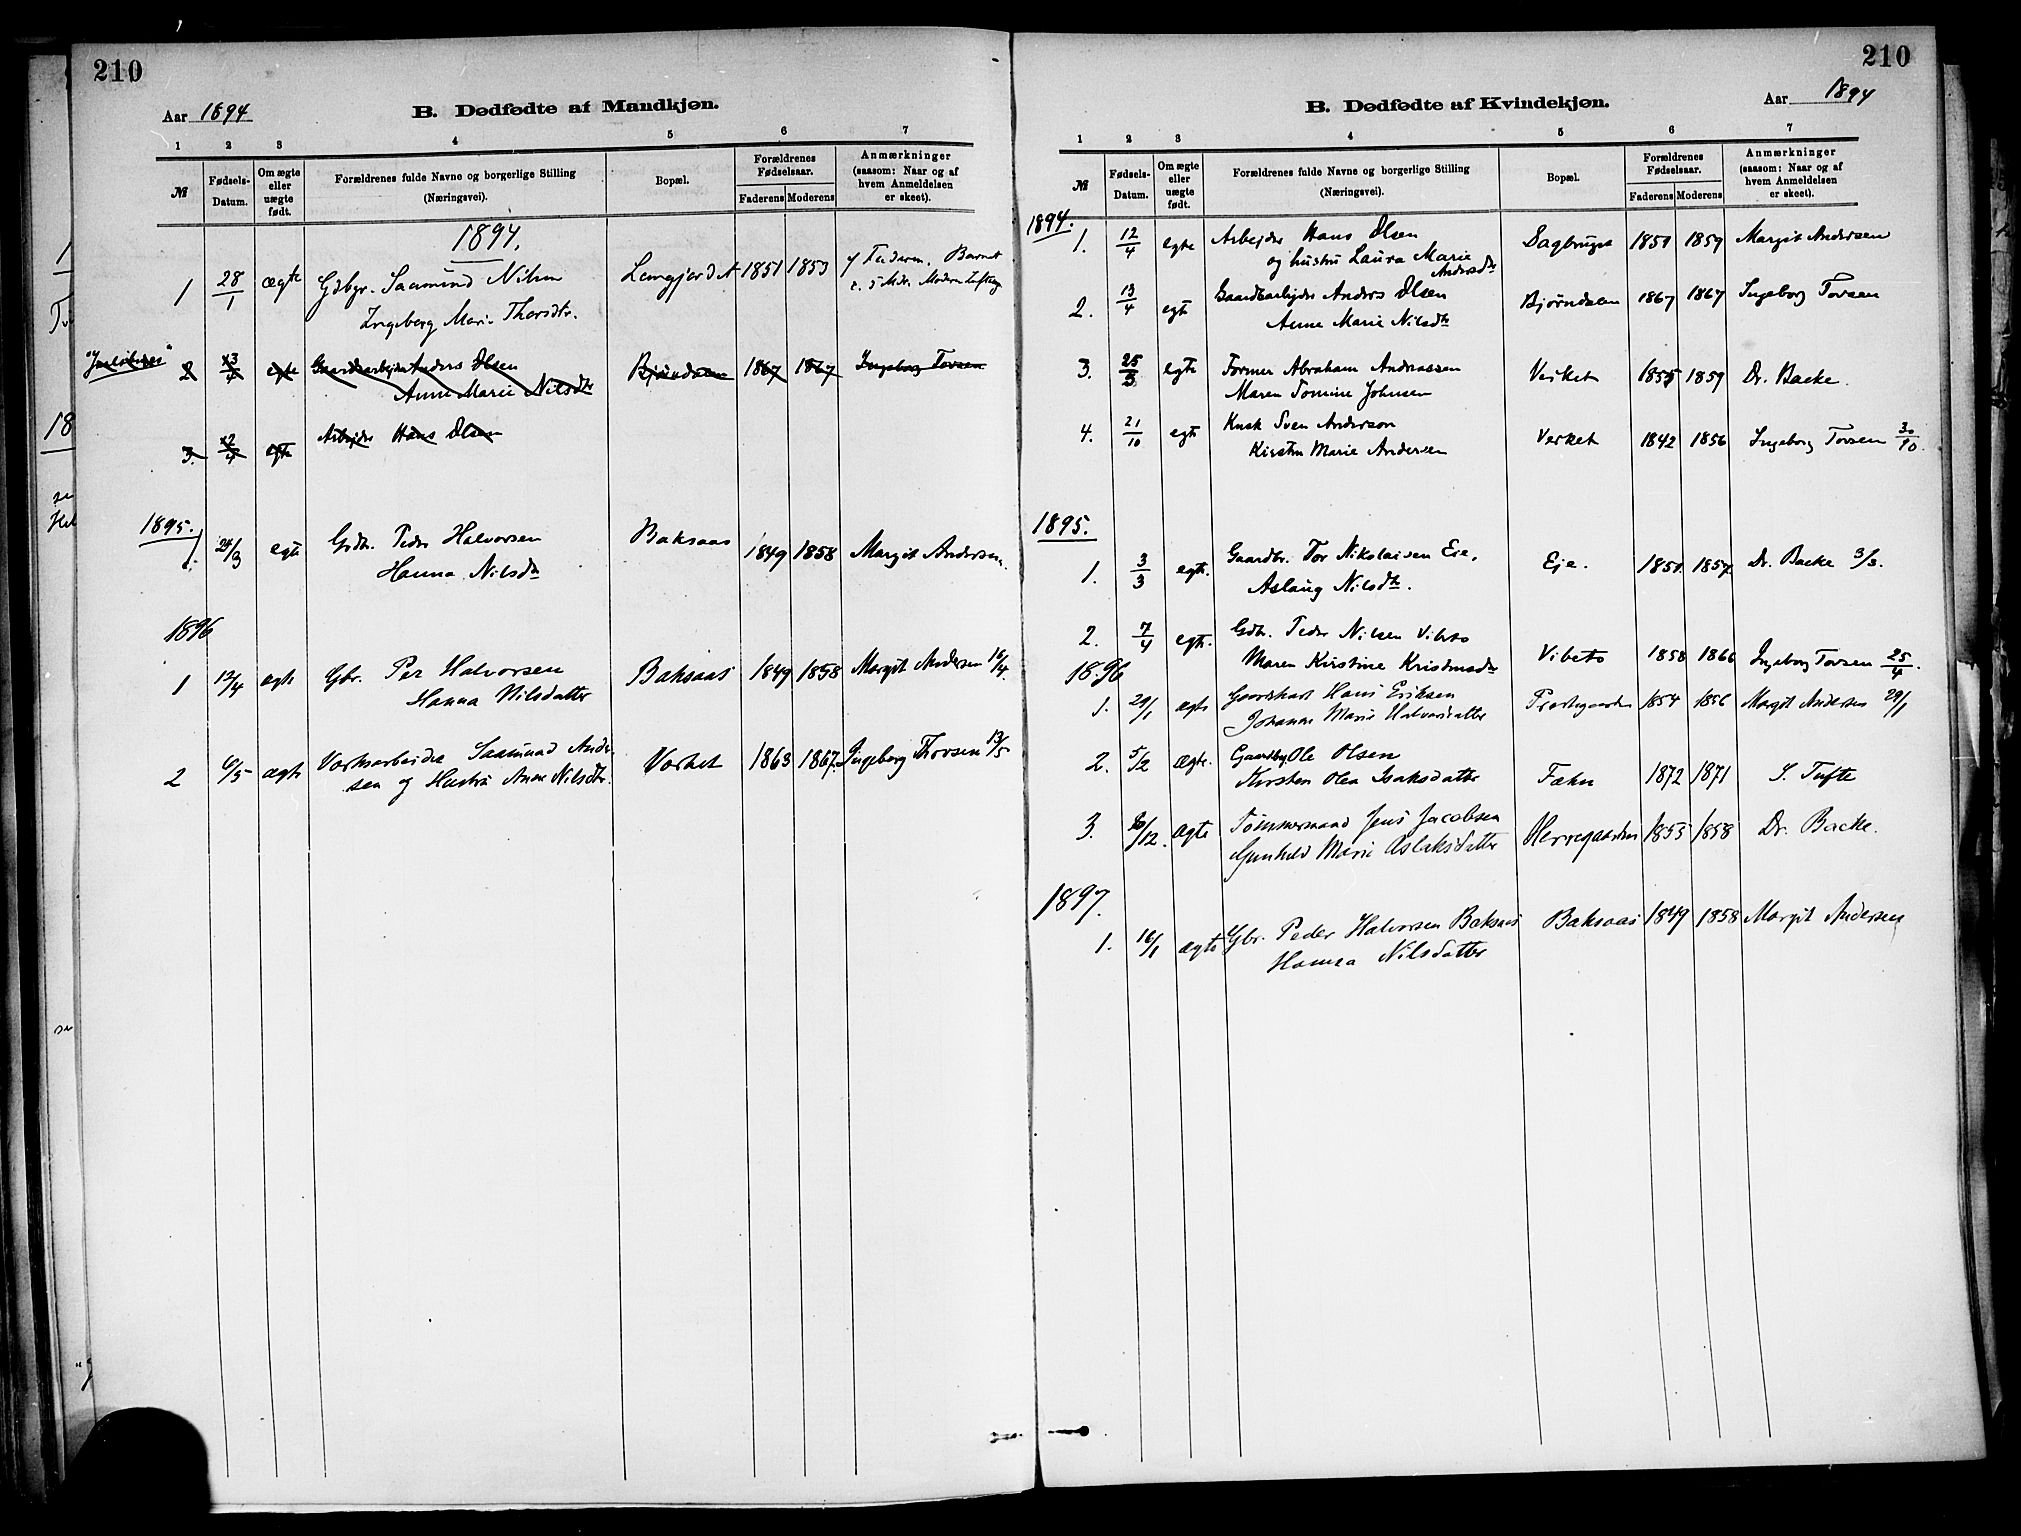 210
Aar 1894
B. Dødfødte af Mandkjøn.
1 2 3 4 5 6 7
№ Fødsels-Datum. Om ægte eller uægte født. Forældrenes fulde Navne og borgerlige Stilling (Næringsvei). Bopæl. Forældrenes Fødselsaar. Faderens Moderens Anmærkninger (saasom: Naar og af hvem Anmeldelsen er skeet).
1894.
1 28/1 ægte Gdbgr. Saamund Nilsen 1851 1853 Faderen. Barnet
Ingeborg Marie Thorsdtr.
2 13/4 egte Gaardarbejder Anders Olsen Bjørndalen 1867 1867 Ingeborg Tovsen
Anne Marie Nilsdtr
3. 12/4 egte Arbejder Hans Olsen
1895.
1. 24/3 egte Grdbr. Peder Halvorsen Baksaas 1849 1858 Margit Andersen.
Hanna Nilsdtr
1896
1 12/4 ægte Gbr. Per Halvorsen Baksaas 1849 1858 Margit Andersen 16/4.
Hanna Nilsdatter
2 6/5 ægte Verksarbeider Saamund Ander- Verket 1863 1867. Ingeborg Thovsen 13/5
sen og Hustru Anne Nilsdtr.
210
Aar 1894
B. Dødfødte af Kvindekjøn.
1 2 3 4 5 6 7
№ Fødsels-Datum. Om ægte eller uægte født. Forældrenes fulde Navne og borgerlige Stilling (Næringsvei). Bopæl. Forældrenes Fødselsaar. Faderens Moderens Anmærkninger (saasom: Naar og af hvem Anmeldelsen er skeet).
1894.
1. 12/4 egte Arbejder Hans Olsen Sagbruget 1851 1859 Margit Andersen
og hustru Laura Marie
Andersdtr
2. 13/4 egte Gaardarbejder Anders Olsen Bjørndalen 1867 1867 Ingeborg Tovsen
Anne Marie Nilsdtr
3. 25/5 egte Former Abraham Andreassen Verket 1855 1859 Dr. Backe.
Maren Tomine Johnsen
4. 21/10 egte Kusk Sven Anderson Verket 1842 1856 Ingeborg Tovsen 30/10.
Kirsten Marie Andersen
1895.
1. 3/3 egte. Gaardbr. Tor Nikolaisen Eie, Eje. 1851 1857 Dr. Backe 3/3.
Aslaug Nilsdtr.
2. 7/4 egte. Gdbr. Peder Nilsen Vibeto Vibeto 1858 1866 Ingeborg Tovsen 25/4.
Maren Kirstine Kristensdtr
1896
1. 29/1 ægte Hans Eriksen Prestegaarden 1854 1856 Margit Andersen 29/1
Johanne Marie Halvorsdatter
2. 5/2 ægte. Gaardbr Ole Olsen Fæhn 1872 1871 S. Tufte
Kirsten Olea Isaksdatter
3. /12. ægte Tømmermand Jens Jacobsen Herregaarden 1855 1858 Dr. Backe.
Gunhild Marie Aslaksdatter
1897.
1. 16/1 ægte Gbr. Peder Halvorsen Baksaas Baksaas 1849 1858 Margit Andersen
Hanna Nilsdatter